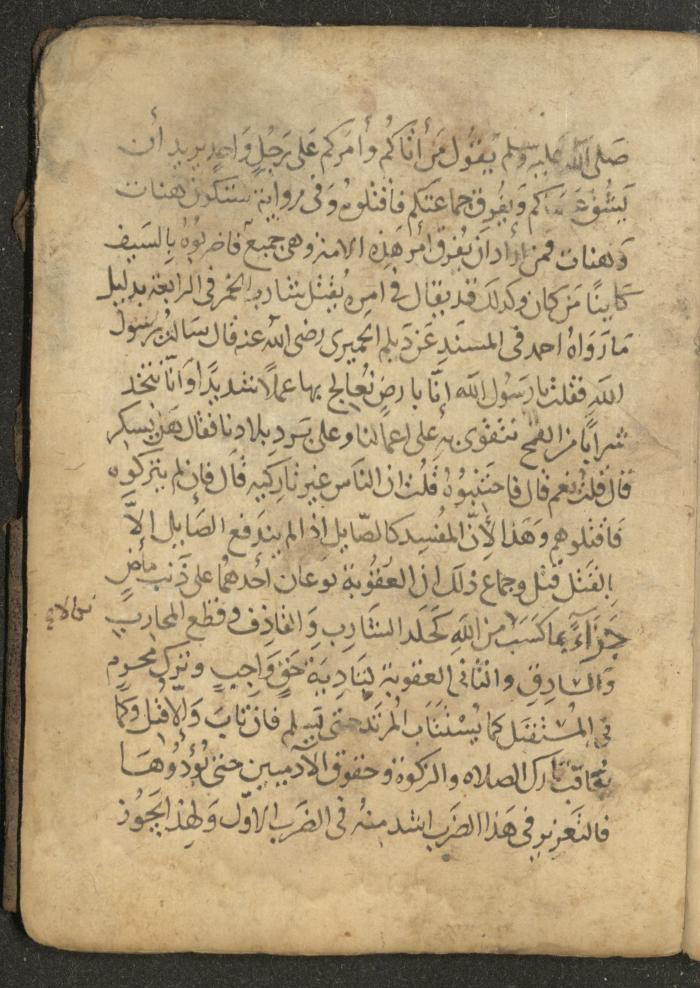 صلى الله عليه وسلم يقول من أتاكم وأمركم على رجل واحد يريد أن
يشق عصاكم ويفرق جماعتكم فاقتلوه وفي رواية ستكون هنات
وهنات فمن أراد ان يفرق أمر هذه الامة وهي جميع فاضربوه بالسيف
كاينًا من كان وكذلك قد يقال في امره بقتل شارب الخمر في الرابعة بدليل
ما رواه احمد في المسند عن ديلم الحميري رضي الله عنه قال سالت رسول
الله فقلت يا رسول الله إنا بارض نعالج بها عملاً شديدًا وانا نتخذ
شرابًا من القمح نتقوى به على اعمالنا وعلى برد بلادنا فقال هل يسكر
قال قلت نعم قال فاجتنبوه قلت ان الناس غير تاركيه قال فان لم يتركوه
فاقتلوهم وهذا لأن المفسد كالصايل اذا لم يندفع الصايل إلا
بالقتل قتل وجماع ذلك ان العقوبة نوعان أحدهما على ذنب ماض
جزاءً بما كسب من الله كجلد الشارب والقاذف وقطع المحارب
والسارق والثاني العقوبة لتادية حق واجب وترك محرم
في المستقبل كما يستتاب المرتد حتى يسلم فان تاب والا قتل وكما
يعاقب تارك الصلاه والزكوة وحقوق الآدميين حتى يؤدوها
فالتعزير في هذا الضرب اشد منه في الضرب الاول ولهذا يجوز